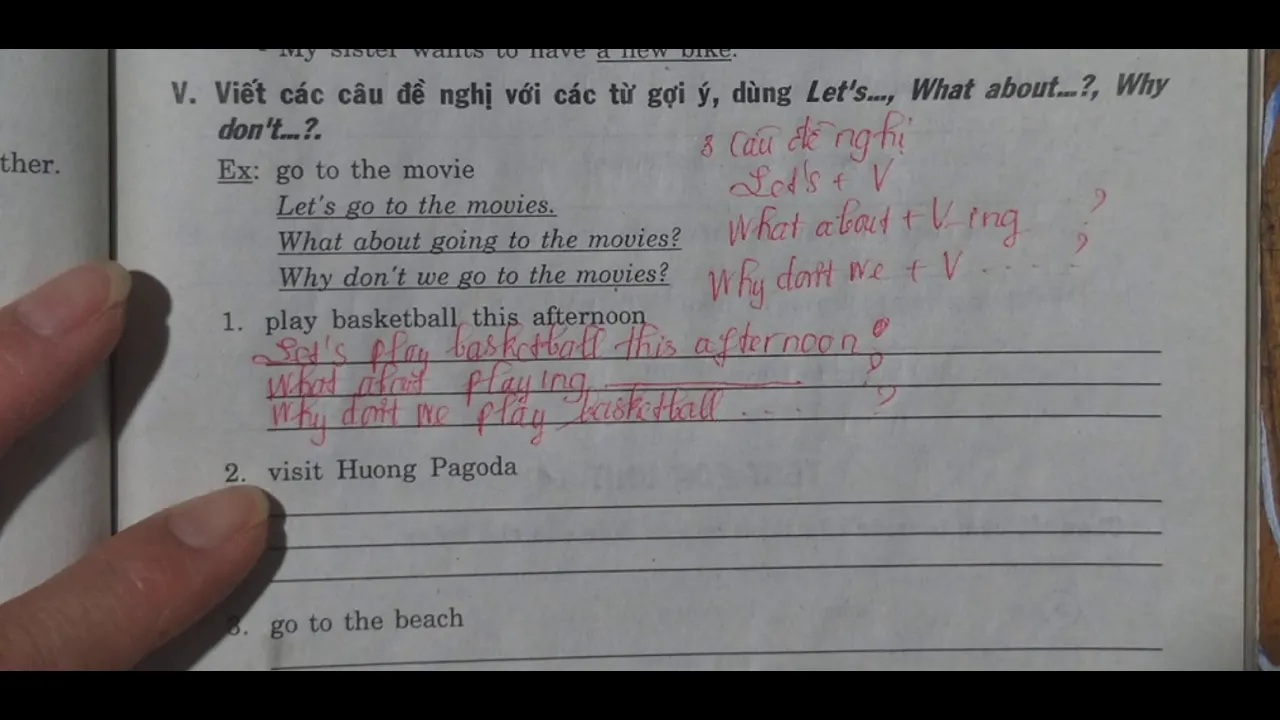 - My sister wants to have a new bike.
V. Viết các câu đề nghị với các từ gợi ý, dùng Let's..., What about...?, Why
don't...?.
ther.
Ex: go to the movie
Let's go to the movies.
What about going to the movies?
Why don't we go to the movies?
câu đề nghị
Let's + V
What about + V-ing ?
Why don't we + V .... ?
1. play basketball this afternoon
Let's play basketball this afternoon.
What about playing ?
Why don't we play basketball ... ?
2. visit Huong Pagoda
3. go to the beach